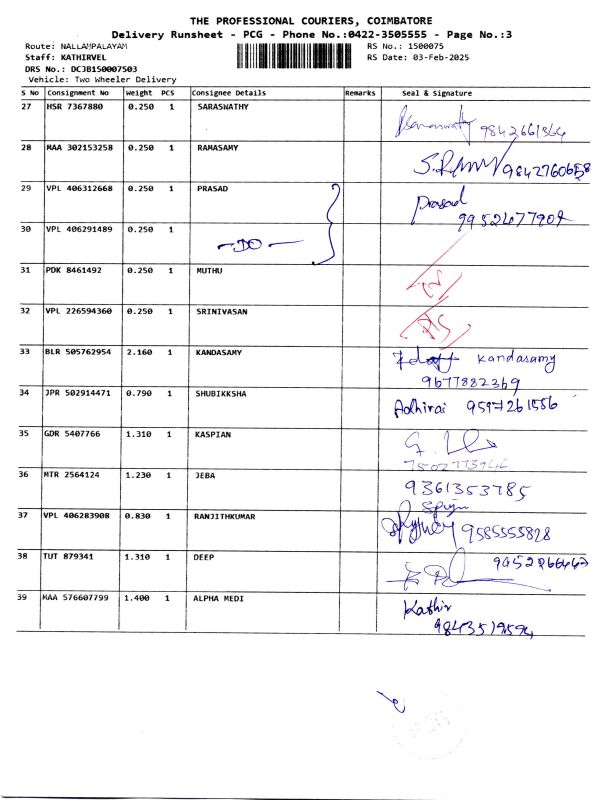 THE PROFESSIONAL COURIERS, COIMBATORE
Delivery Runsheet - PCG - Phone No.:0422-3505555 - Page No.:3
Route: NALLAMPALAYAM RS No.: 1500075
Staff: KATHIRVEL RS Date: 03-Feb-2025
DRS No.: DCJB150007503
Vehicle: Two Wheeler Delivery
S No Consignment No Weight PCS Consignee Details Remarks Seal & Signature
27 HSR 7367880 0.250 1 SARASWATHY
Saraswathy 9842661364
28 MAA 302153258 0.250 1 RAMASAMY
29 VPL 406312668 0.250 1 PRASAD Prasad
30 VPL 406291489 0.250 1
-DO-
31 PDK 8461492 0.250 1 MUTHU
32 VPL 226594360 0.250 1 SRINIVASAN
33 BLR 505762954 2.160 1 KANDASAMY Kandasamy
9677882369
34 JPR 502914471 0.790 1 SHUBIKKSHA Adhirai 9597261556
35 GDR 5407766 1.310 1 KASPIAN
36 MTR 2564124 1.230 1 JEBA 9361353785
37 VPL 406283908 0.830 1 RANJITHKUMAR 9585555828
38 TUT 879341 1.310 1 DEEP
39 MAA 576607799 1.400 1 ALPHA MEDI Kathir
9843519594